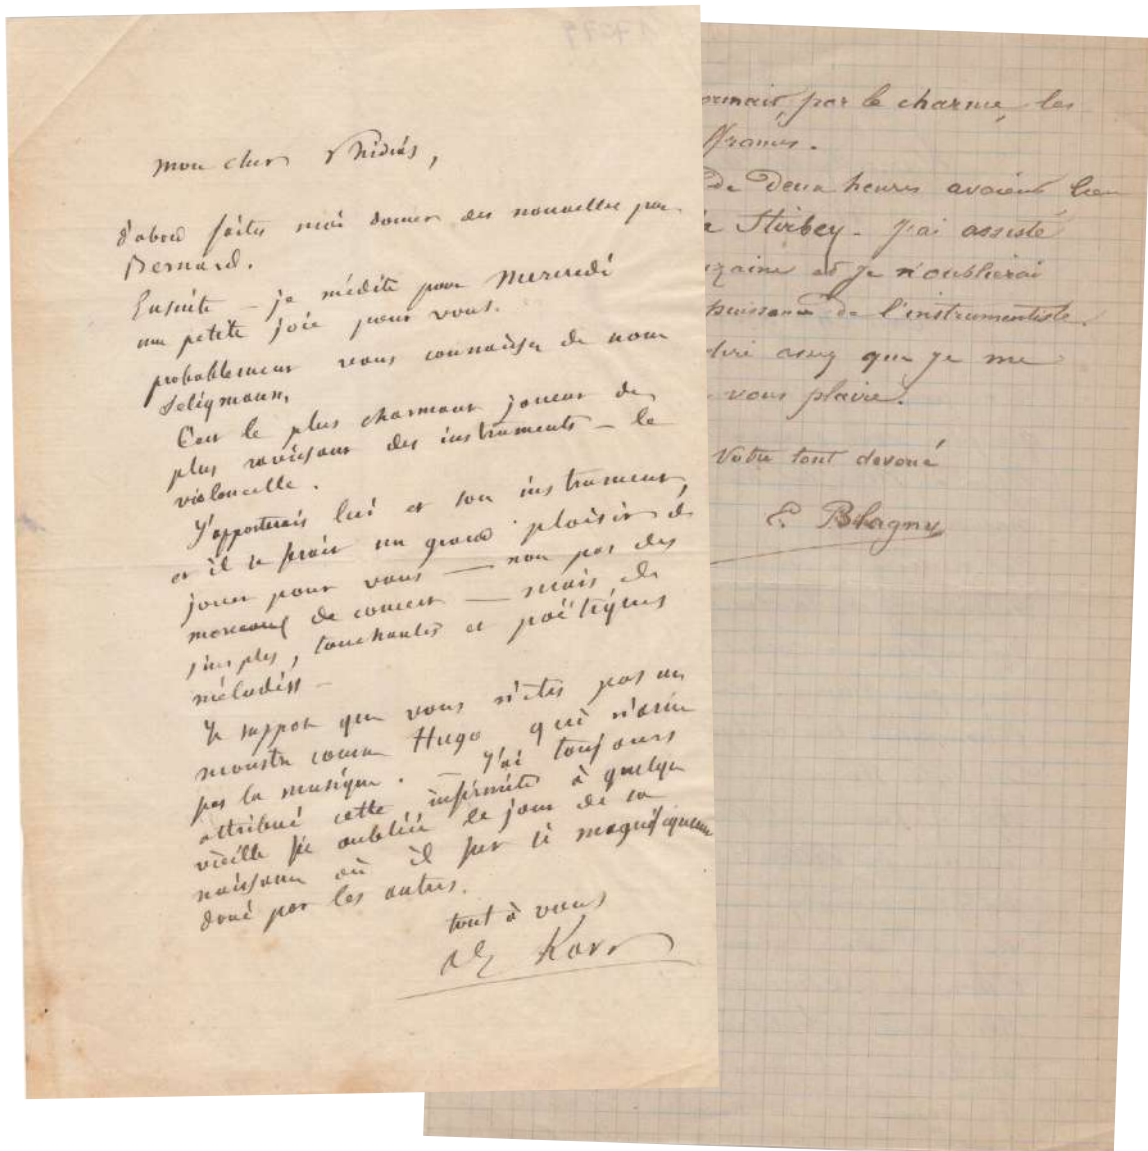 mon cher Phidias,
d'abord faites moi donner des nouvelles par
Bernard.
Ensuite – je médite pour Mercredi
une petite joie pour vous.
probablement vous connaissez de nom
Seligmann,
C'est le plus charmant joueur du
plus ravissant des instruments – le
violoncelle.
J'apporterais lui et son instrument,
et il se ferait un grand plaisir de
jouer pour vous — non pas des
morceaux de concert — mais de
simples, touchantes et poëtiques
mélodies –
Je suppose que vous n'êtes pas un
monstre comme Hugo qui n'aime
pas la musique. – J'ai toujours
attribué cette infirmité à quelque
vieille fée oubliée le jour de sa
naissance où il fut si magnifiquement
doué par les autres.
tout à vous
Alp Karr
par le charme, les
de deux heures avaient lieu
Stirbey – J'ai assisté
et je n'oublierai
puissance de l'instrumentiste.
dire assez que je me
vous plaire.
Votre tout dévoué
E.
17279